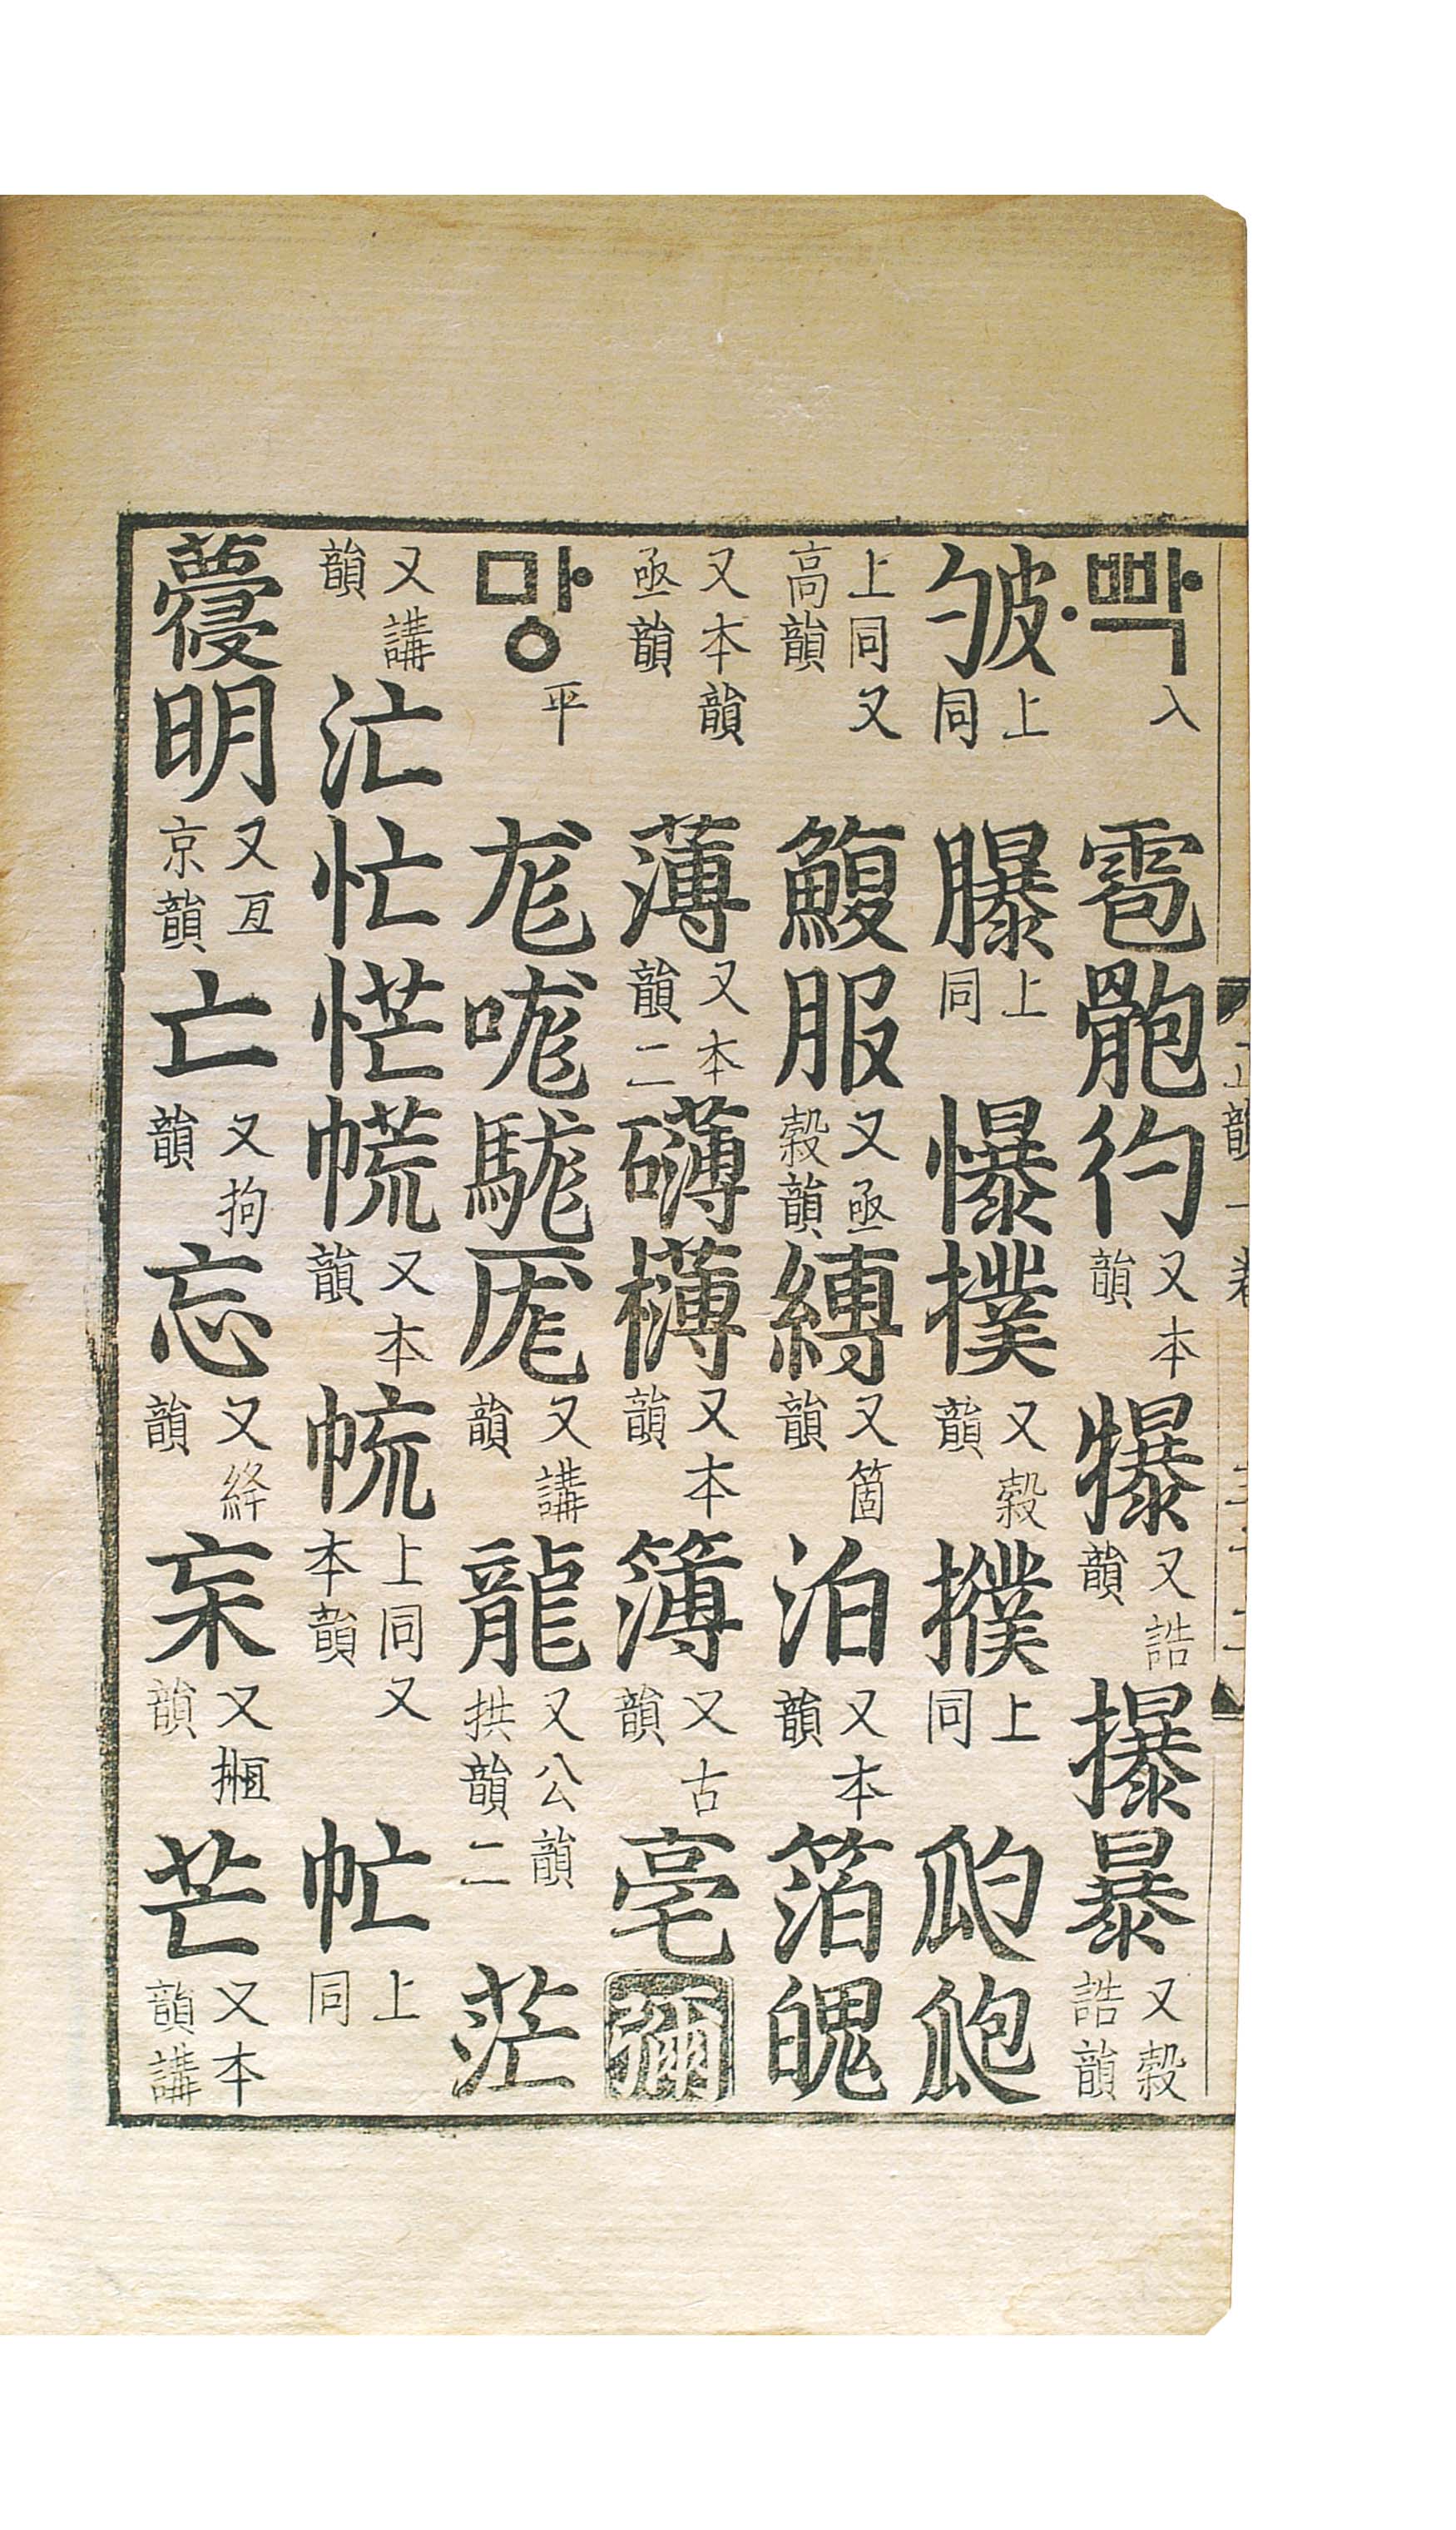 빡 入 雹骲彴 又本韻 犦 又誥韻 㩧暴 又穀誥韻
上同 上同 懪撲 又穀韻 擈 上同 瓝瓟
上同又高韻 鰒服 又亟穀韻 縛 又箇韻 泊 又本韻 箔魄
又本韻亟韻 薄 又本韻二 礴欂 又本韻 簿 又古韻 亳 彌
망 平 尨哤駹厖 又講韻 龍 又公韻拱韻二 茫
又講韻 汒忙恾㡛 又本韻 㡆 上同又本韻 上同
明 又亙京韻 亡 又拘韻 忘 又絳韻 杗 又搄韻 芒 又本韻講